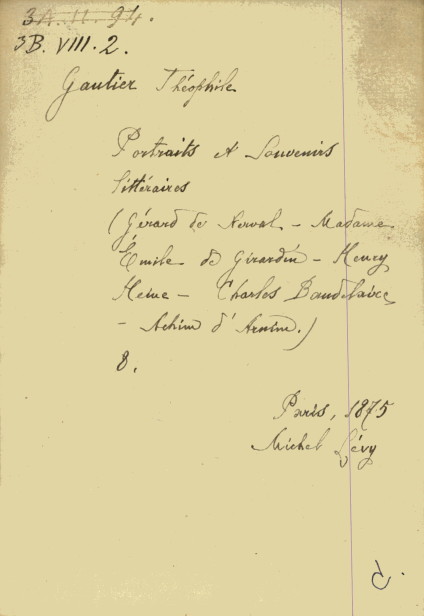 3A.II.94.
3B. VIII. 2.
Gautier Théophile
Portraits et Souvenirs
littéraires
(Gérard de Nerval – Madame
Émile de Girardin – Henry
Heine – Charles Baudelaire
– Achim d'Arnim.)
8.
Paris, 1875
Michel Lévy